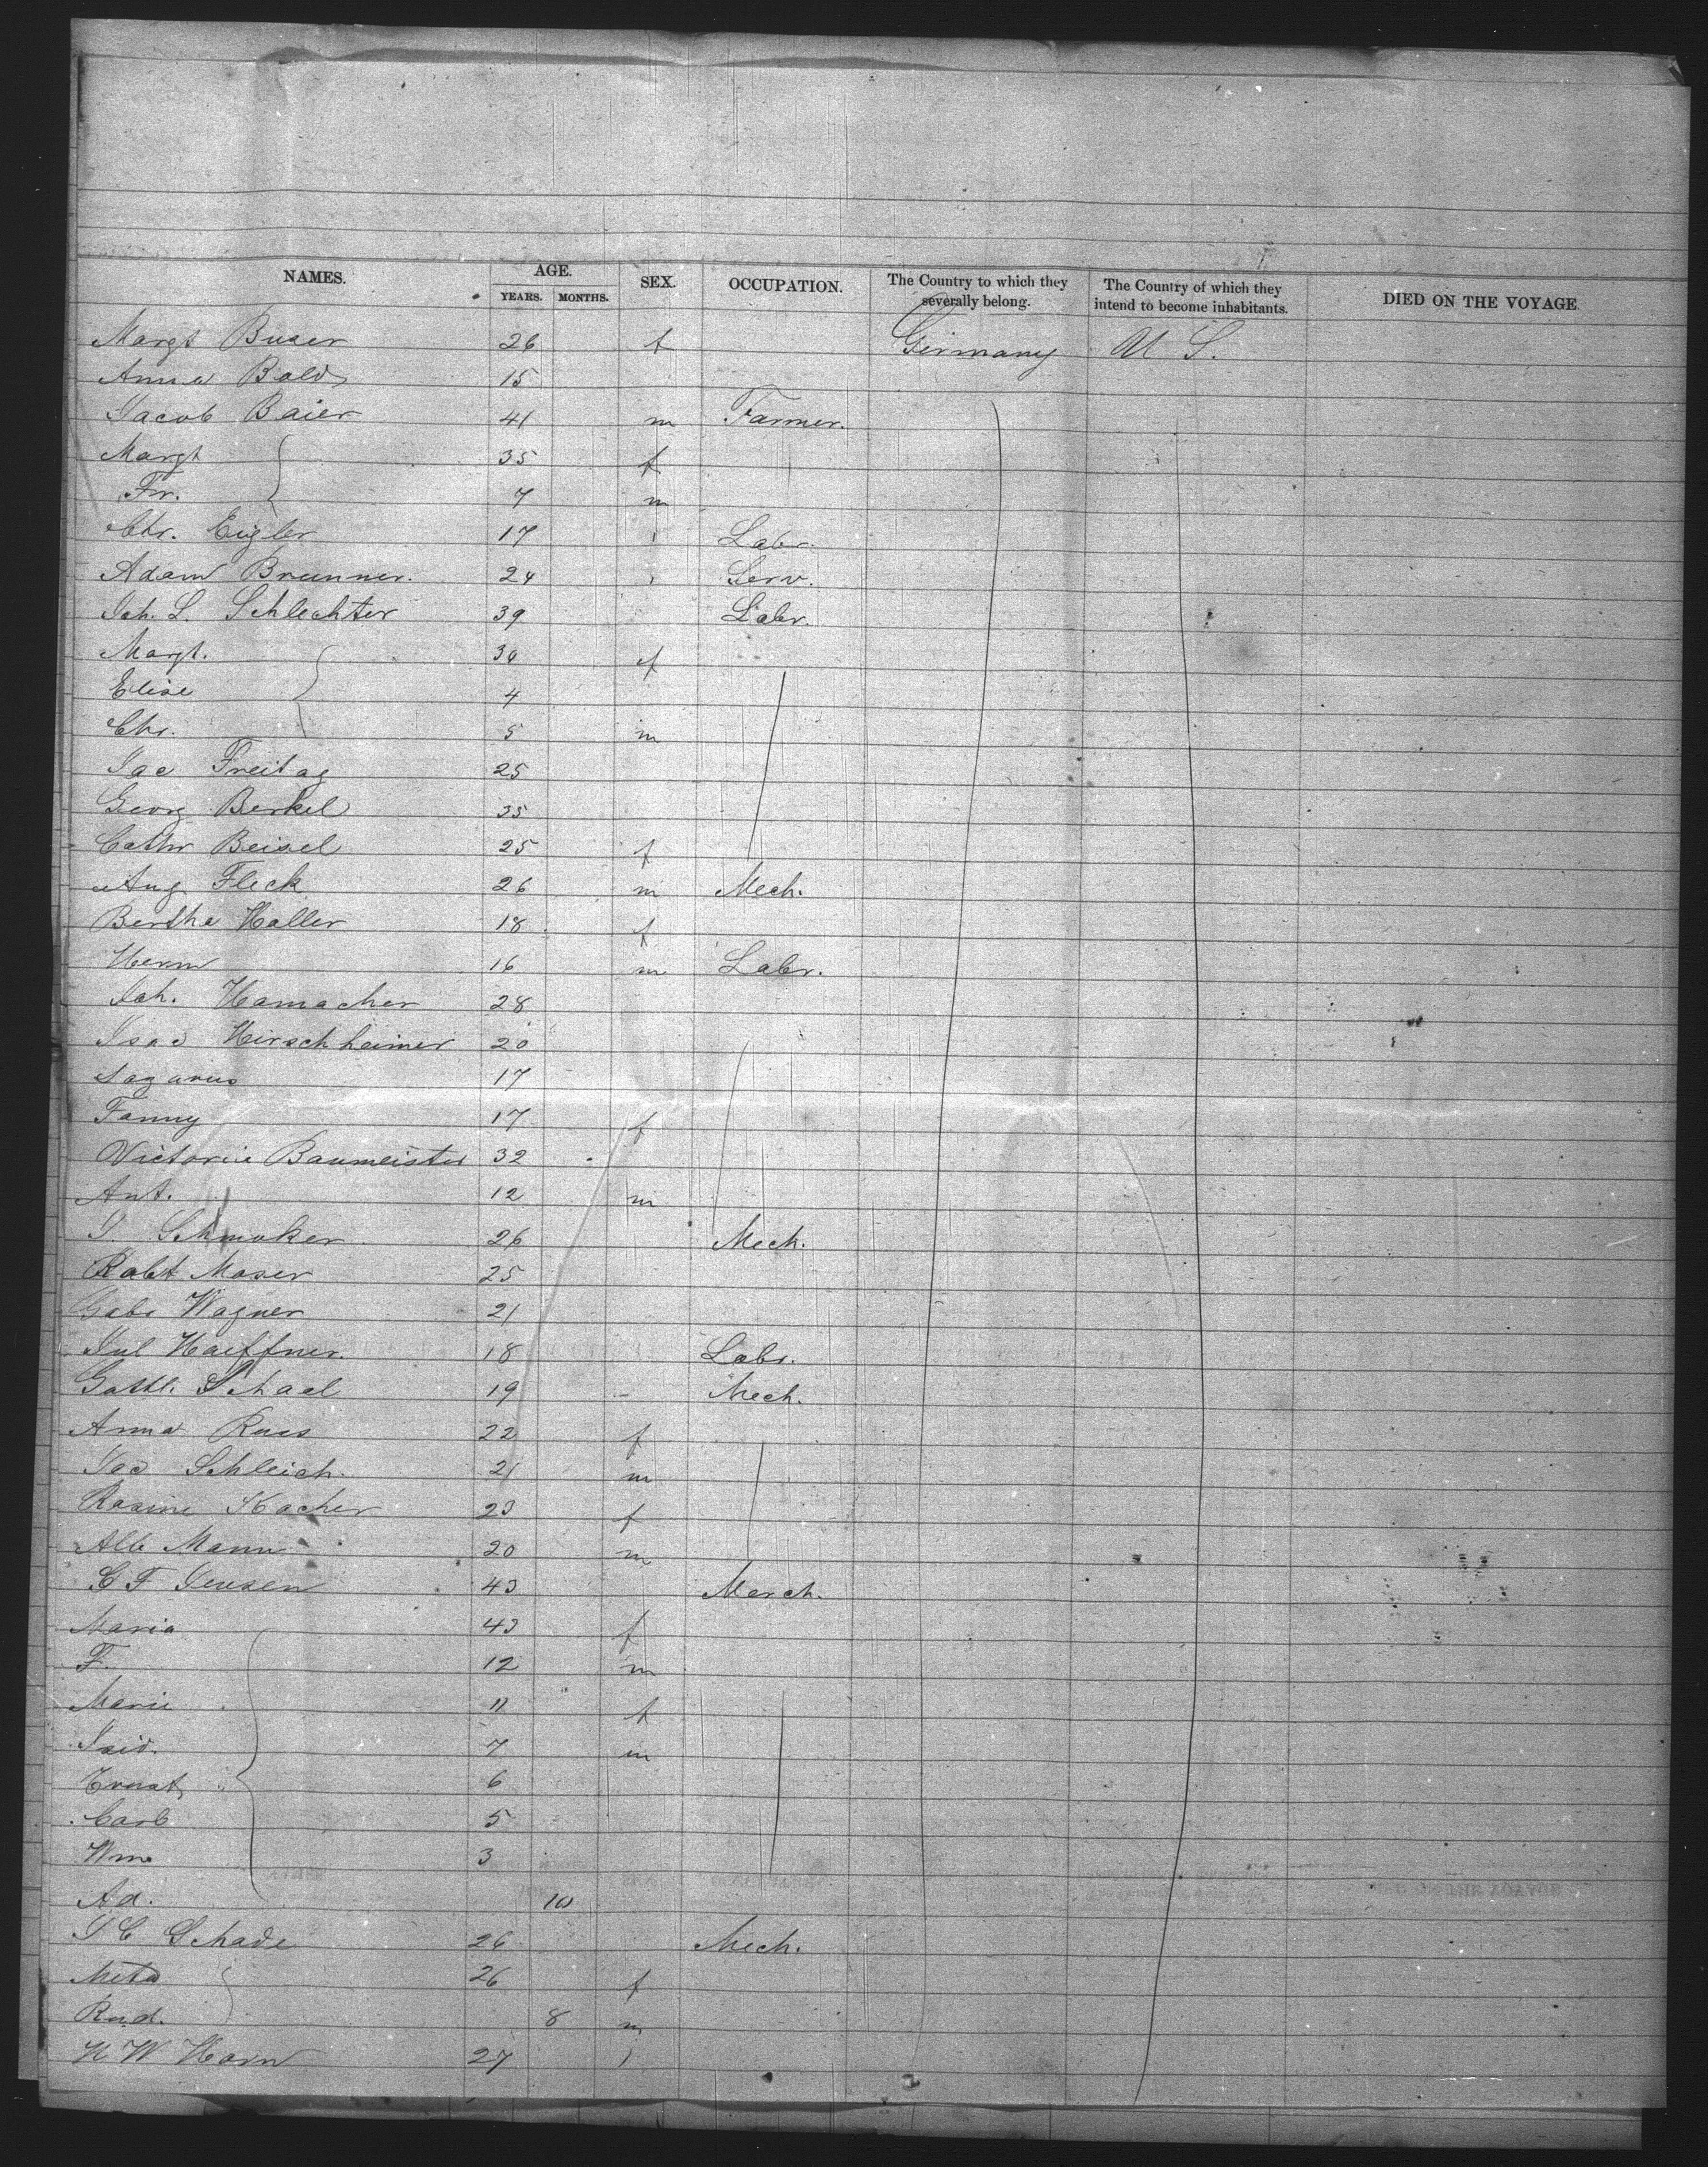 NAMES. AGE. SEX. OCCUPATION. The Country to which they severally belong. The Country of which they intend to become inhabitants. DIED ON THE VOYAGE
YEARS. MONTHS.
Margt Buser 26 f Germany U S.
Anna Bold 15
Jacob Baier 41 m Farmer.
Margt 35 f
Fr. 7 m
Chr. Eigler 17 Labr.
Adam Brunner. 24 Serv.
Joh. L. Schlechter 39 Labr.
Margt. 34 f
Elise 4
Chr. 5 m
Jac Freitag 25
Georg Berkel 35
Cathr Beisel 25 f
Aug Fleck 26 m Mech.
Bertha Haller 18 f
Herm 16 m Labr.
Joh. Hamacher 28
Isac Hirschheimer 20
Lazarus 17
Fanny 17 f
Victoria Baumeister 32
Ant. 12 m
J. Schmoker 26 Mech.
Robt Moser 25
Gabr Wagner 21
Jul Haeffner. 18 Labr.
Gottl. Schael 19 Mech.
Anna Russ 22 f
Jac Schleich. 21 m
Rosine Kocher 23 f
Alb Mann 20 m
C F Jensen 43 Merch.
Maria 43 f
F. 12 m
Marie 11 f
7 m
Ernst 6
Carl 5
Wm 3
Ad. 10
J C Schade 26 Mech.
Meta 26 f
Rud. 8 m
H W Horn 27